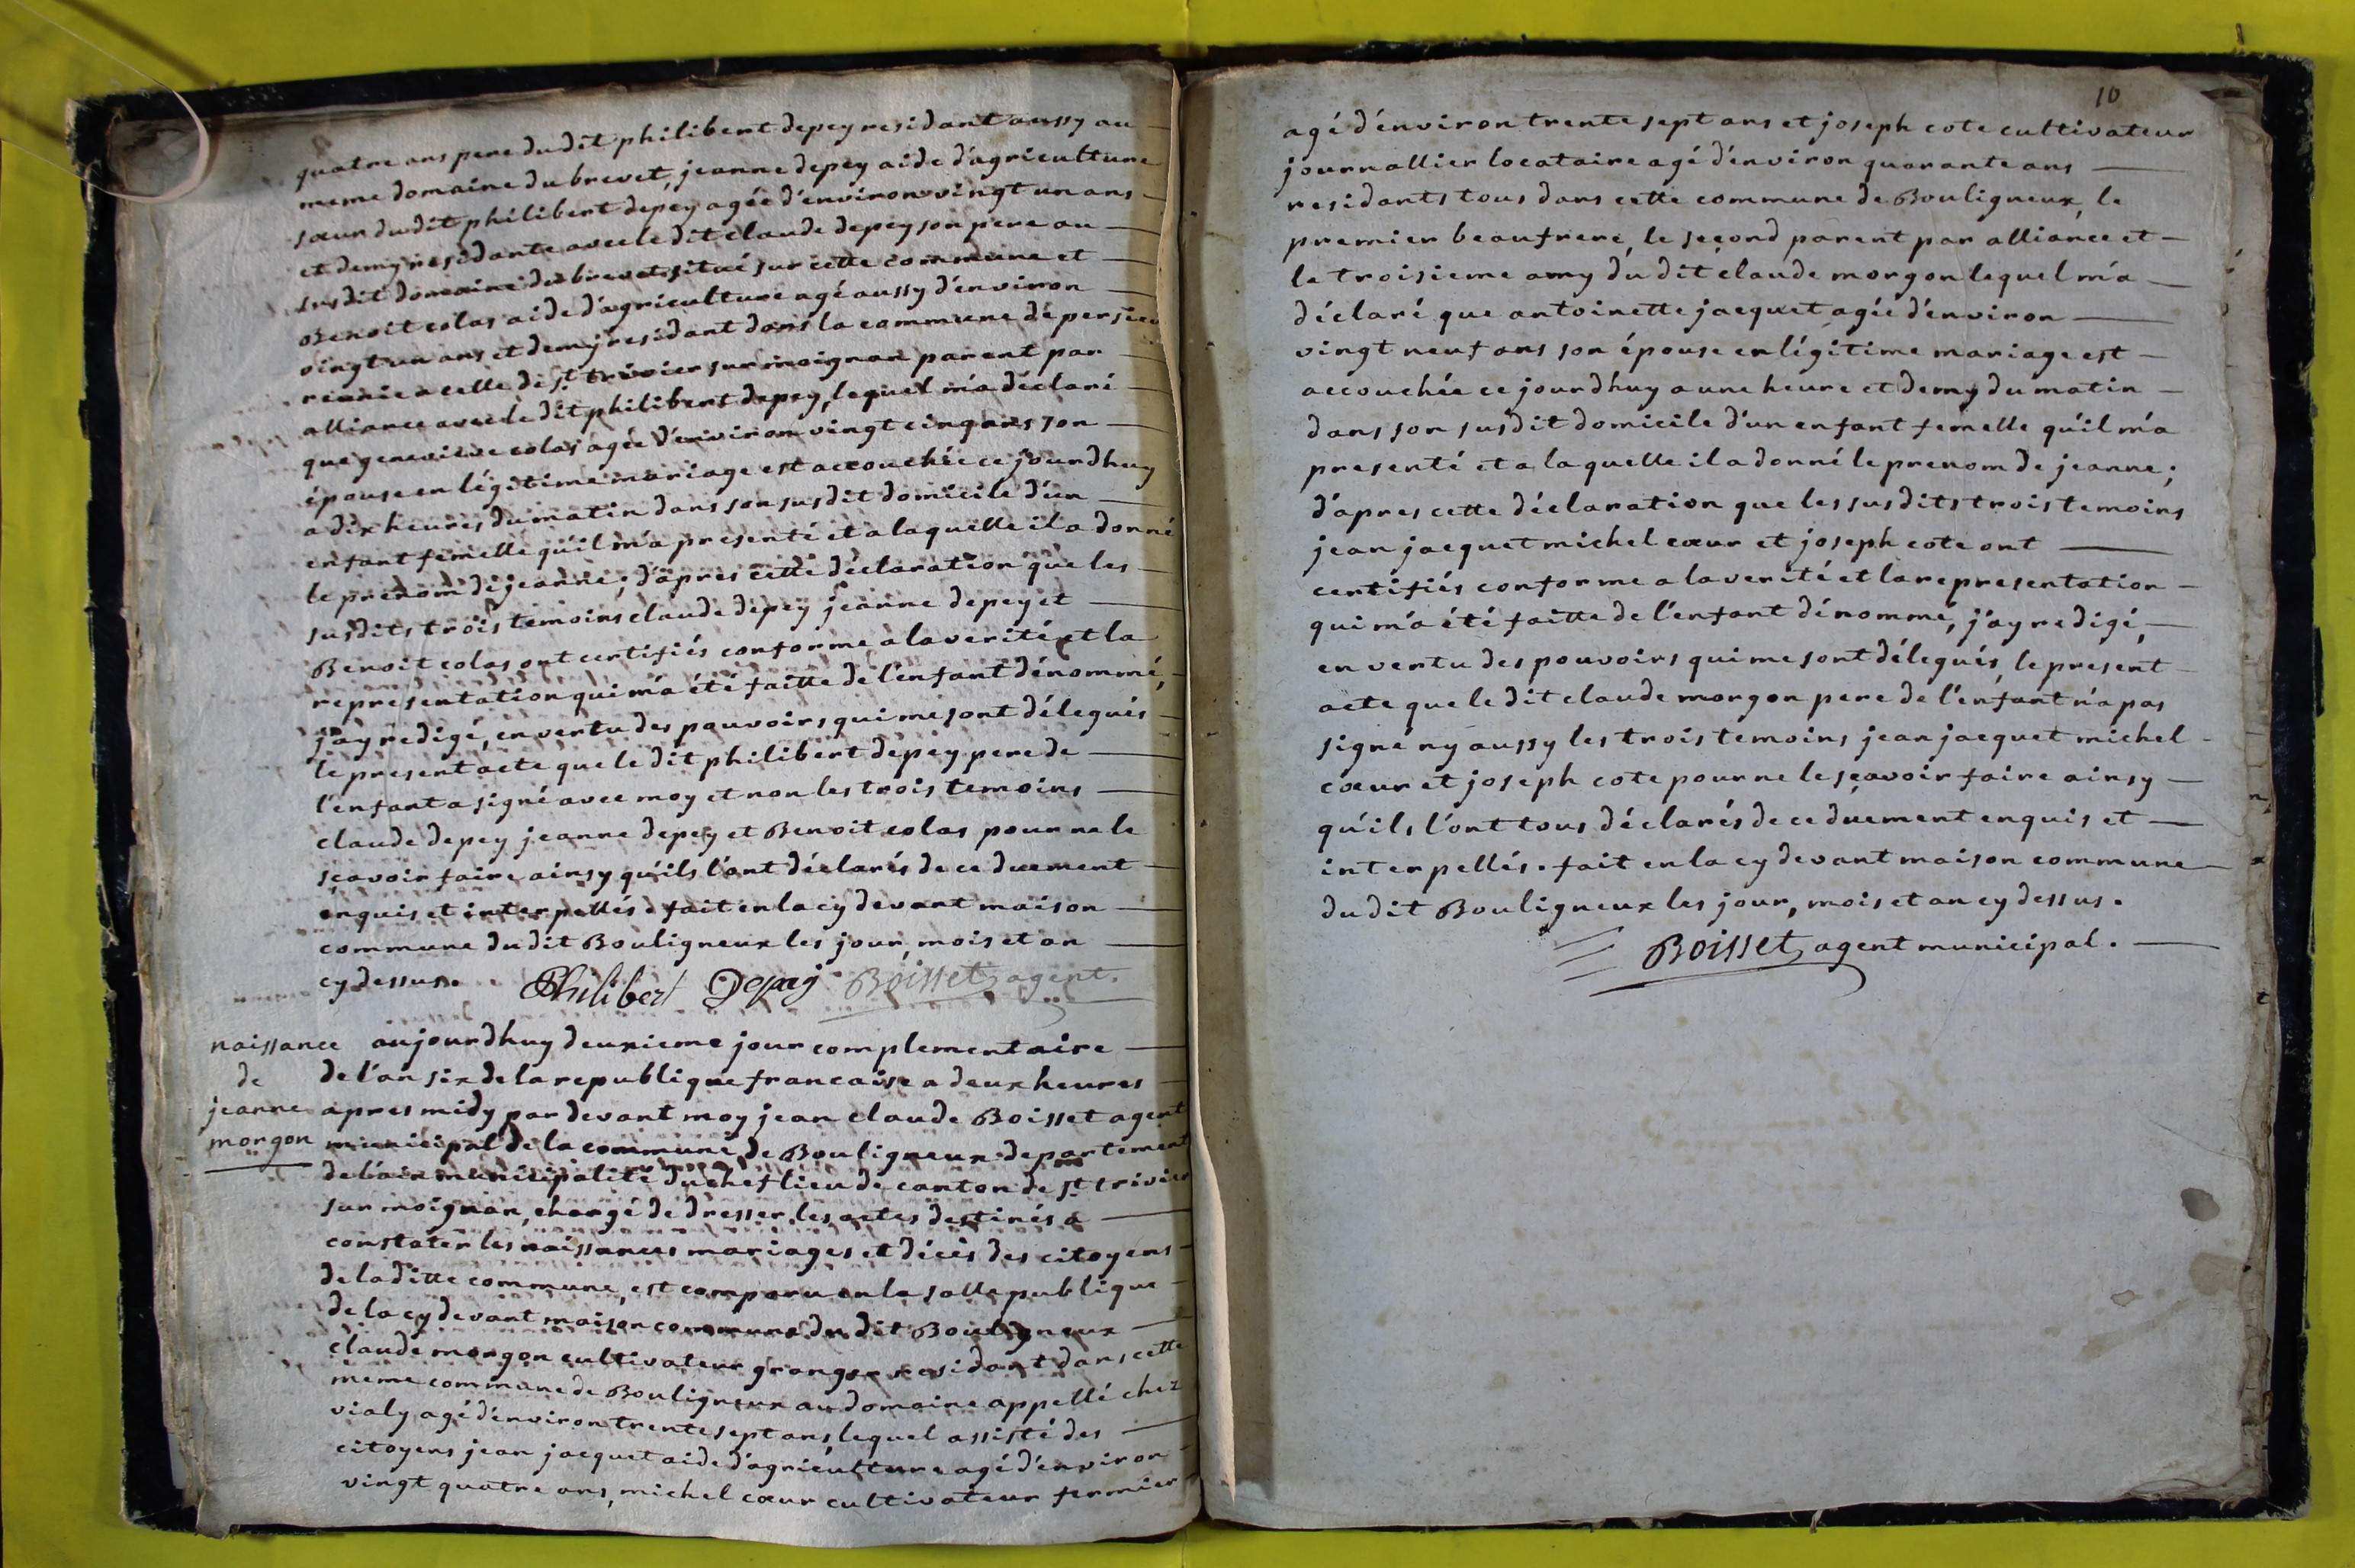 quatre ans pere du dit philibert depey residant aussy au
meme domaine du brevet, jeanne depey aide d'agriculture
sœur du dit philibert depey agée d'environ vingt un ans
et demy residante avec le dit claude depey son pere au
susdit domaine du brevet situé sur cette commune et
Benoit colas aide d'agriculture agé aussy d'environ
vingt un ans et demy residant dans la commune de persieu
reunie a celle de st trivier sur moignan parent par
alliance avec le dit philibert depey, lequel m'a déclaré
que genevieve colas agée d'environ vingt cinq ans son
épouse en légitime mariage est accouchée ce jourdhuy
a dix heures du matin dans son susdit domicile d'un
enfant femelle qu'il m'a presenté et a laquelle il a donné
le prenom de jeanne; d'apres cette déclaration que les
susdits trois temoins claude depey jeanne depey et
Benoit colas ont certifiés conforme a la verité et la
representation qui m'a été faitte de l'enfant dénommé,
j'ay redigé, en vertu des pouvoirs qui me sont délegués
le present acte que le dit philibert depey pere de
l'enfant a signé avec moy et non les trois temoins
claude depey jeanne depey et Benoit colas pour ne le
sçavoir faire ainsy qu'ils l'ont déclarés de ce duement
enquis et interpellés. fait en la cy devant maison
commune du dit Bouligneux les jour, mois et an
cy dessus. Philibert Depey Boisset agent.
naissance de jeanne morgon
aujourdhuy deuxieme jour complementaire
de l'an six de la republique francaise a deux heures
apres midy par devant moy jean claude Boisset agent
municipal de la commune de Bouligneux departement
de l'ain municipalité du chef lieu de canton de st trivier
sur moignan, chargé de dresser les actes destinés a
constater les naissances mariages et décès des citoyens
de la ditte commune, est comparu en la salle publique
de la cy devant maison commune du dit Bouligneux
claude morgon cultivateur granger residant dans cette
meme commune de Bouligneux au domaine appellé chez
vialy agé d'environ trente sept ans, lequel assisté des
citoyens jean jacquet aide d'agriculture agé d'environ
vingt quatre ans, michel cœur cultivateur fermier
10
agé d'environ trente sept ans et joseph cote cultivateur
journallier locataire agé d'environ quarante ans
residants tous dans cette commune de Bouligneux, le
premier beaufrere, le second parent par alliance et
le troisieme amy du dit claude morgon lequel m'a
déclaré que antoinette jacquet agée d'environ
vingt neuf ans son épouse en légitime mariage est
accouchée ce jourdhuy a une heure et demy du matin
dans son susdit domicile d'un enfant femelle qu'il m'a
presenté et a laquelle il a donné le prenom de jeanne;
d'apres cette déclaration que les susdits trois temoins
jean jacquet michel cœur et joseph cote ont
certifiés conforme a la verité et la representation
qui m'a été faitte de l'enfant dénommé, j'ay redigé,
en vertu des pouvoirs qui me sont délegués, le present
acte que le dit claude morgon pere de l'enfant n'a pas
signé ny aussy les trois temoins jean jacquet michel
cœur et joseph cote pour ne le sçavoir faire ainsy
qu'ils l'ont tous déclarés de ce duement enquis et
interpellés. fait en la cy devant maison commune
du dit Bouligneux les jour, mois et an cy dessus.
Boisset agent municipal.